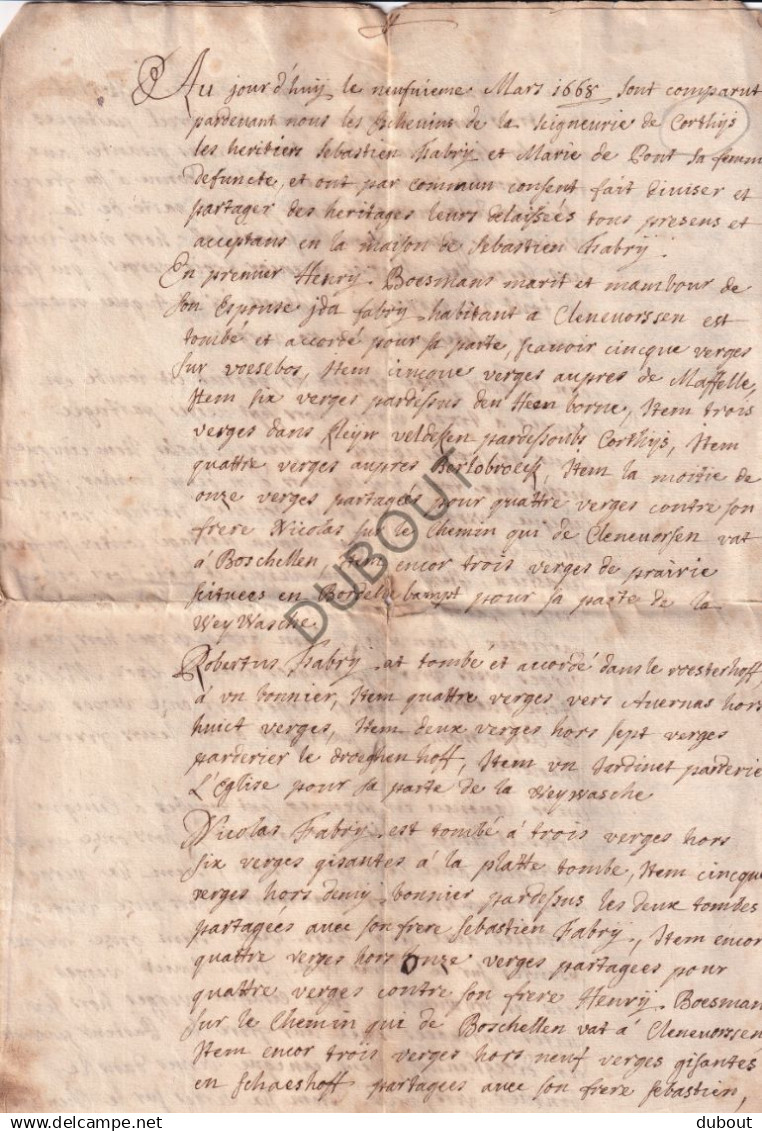 Au jour d'huij le neufvieme Mars 1668 sont comparut
pardevant nous les Eschevins de la seigneurie de Corthijs
les heritiers Sebastien Fabrij et Marie de Pont sa femm
defuncte, et ont par commun consent fait diviser et
partager des heritages leurs delaissées tous presens et
acceptans en la maison de Sebastien Fabrij.
En premier Henrij Boesmans marit et mambour de
son Espouse jda fabrij habitant a Clenevorssen est
tombé et accordé pour sa parte, scavoir cincque verges
sur voesebos, Item cincque verges aupres de Maffelle,
Item six verges pardessus den Steen borne, Item trois
verges dans Kleijn veldeken pardessoubs Corthijs, Item
quattre verges aupres Berlobroeck, Item la moitie de
onze verges partagées pour quattre verges contre son
frere Nicolas sur le Chemin qui de Clenevorsen vat
á Boschellen, Item encor trois verges de prairie
scituees en bampt pour sa parte de la
WeyWasche.
Robertus Fabrij at tombé et accordé dans le roesterhoff,
á vn bonnier, Item quattre verges vers Avernas hors
huict verges, Item deux verges hors sept verges
parderier le droeghen hoff, Item vn Jordinet parderie
L'Eglise pour sa parte de la Weywasche
Nicolas Fabrij est tombé á trois verges hors
six verges gisantes á la platte tombe, Item cincque
verges hors demij bonnier pardessus les deux tombes
partagées avec son frere Sebastien Fabrij, Item encor
quattre verges hors onze verges partagees pour
quattre verges contre son frere Henrij Boesman
sur le Chemin qui de Boschellen vat á Clenevorssen
Item encor trois verges hors neuf verges gisantes
en Schaeshoff partagees avec son frere Sebastien,
DUBOUT
delcampe.net
dubout